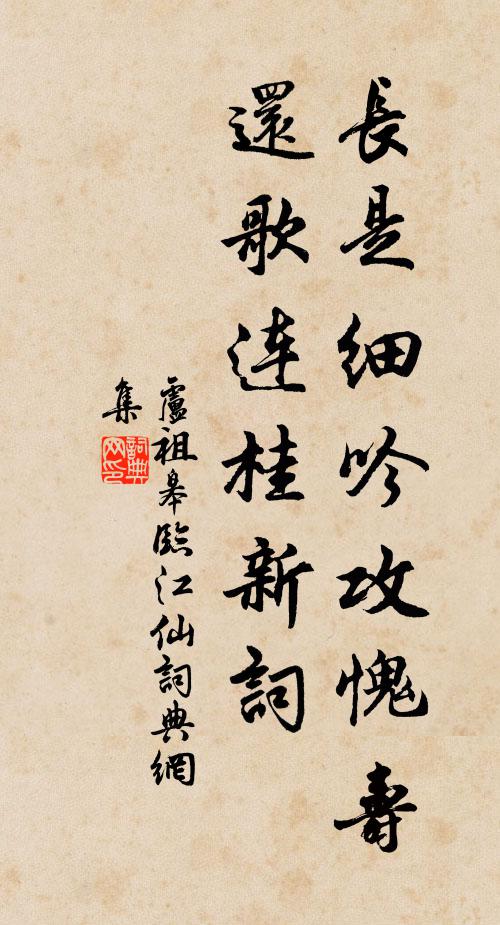 長是細吟攻愧壽
還歌連桂新詞
盧祖皋臨江仙詞典網
集
詞典网印